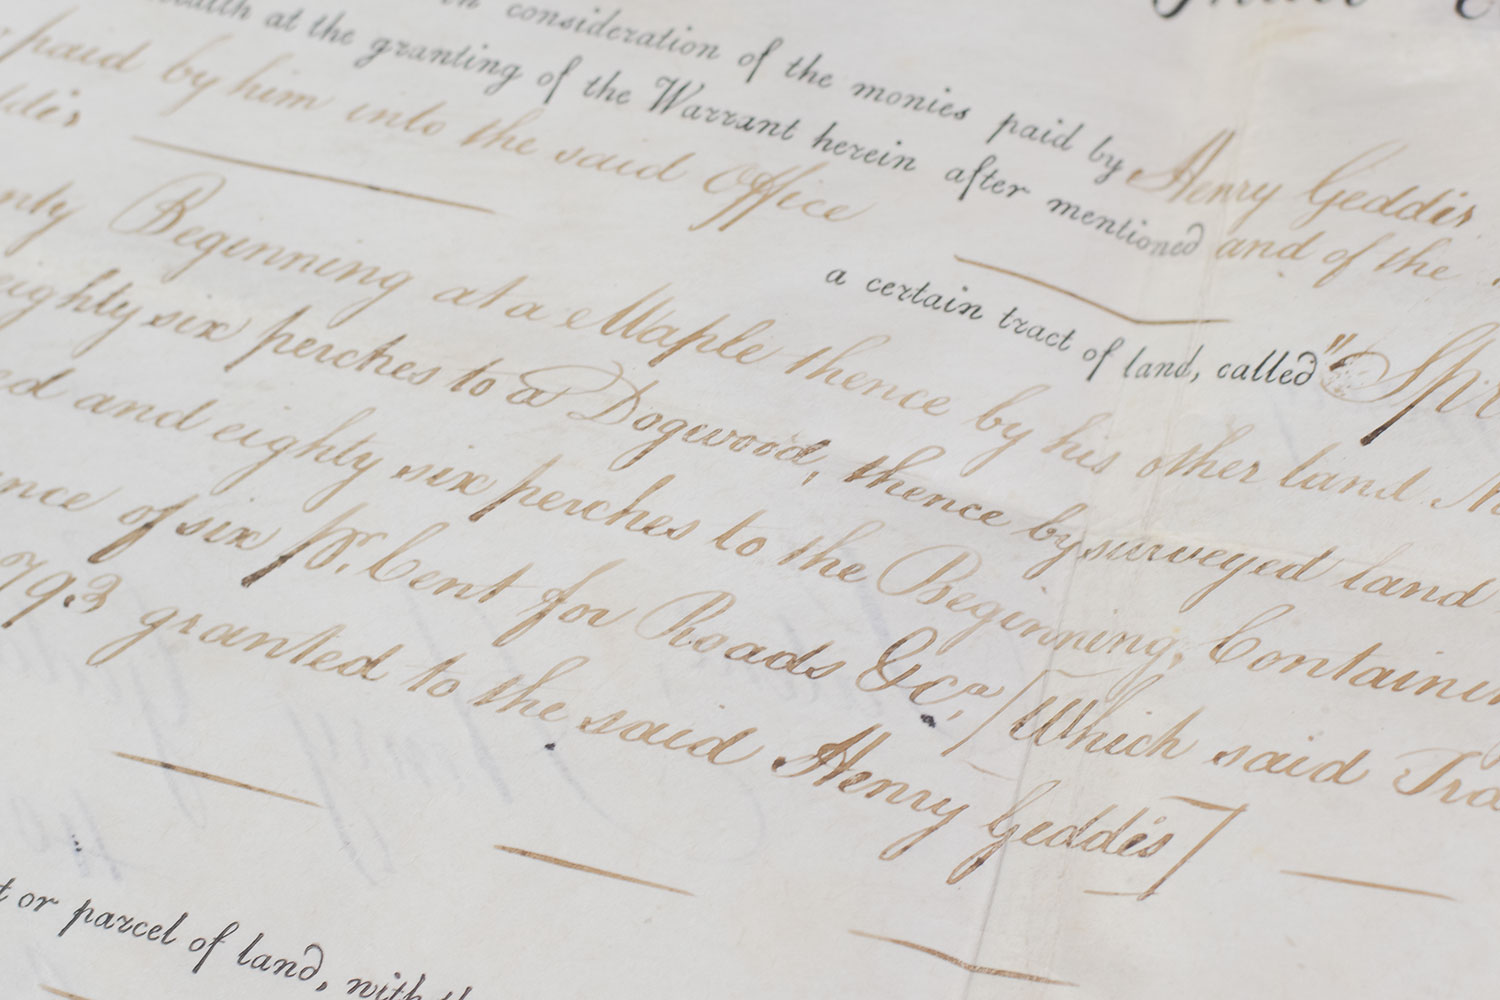 in consideration of the monies paid by Henry Geddis
at the granting of the Warrant herein after mentioned and of the
paid by him into the said Office
a certain tract of land, called "Spr
Beginning at a Maple thence by his other land
eighty six perches to a Dogwood, thence by surveyed land
ed and eighty six perches to the Beginning, Containin
nce of six Pr. Cent for Roads &ca. [Which said Tra
793 granted to the said Henry Geddis]
t or parcel of land, with th